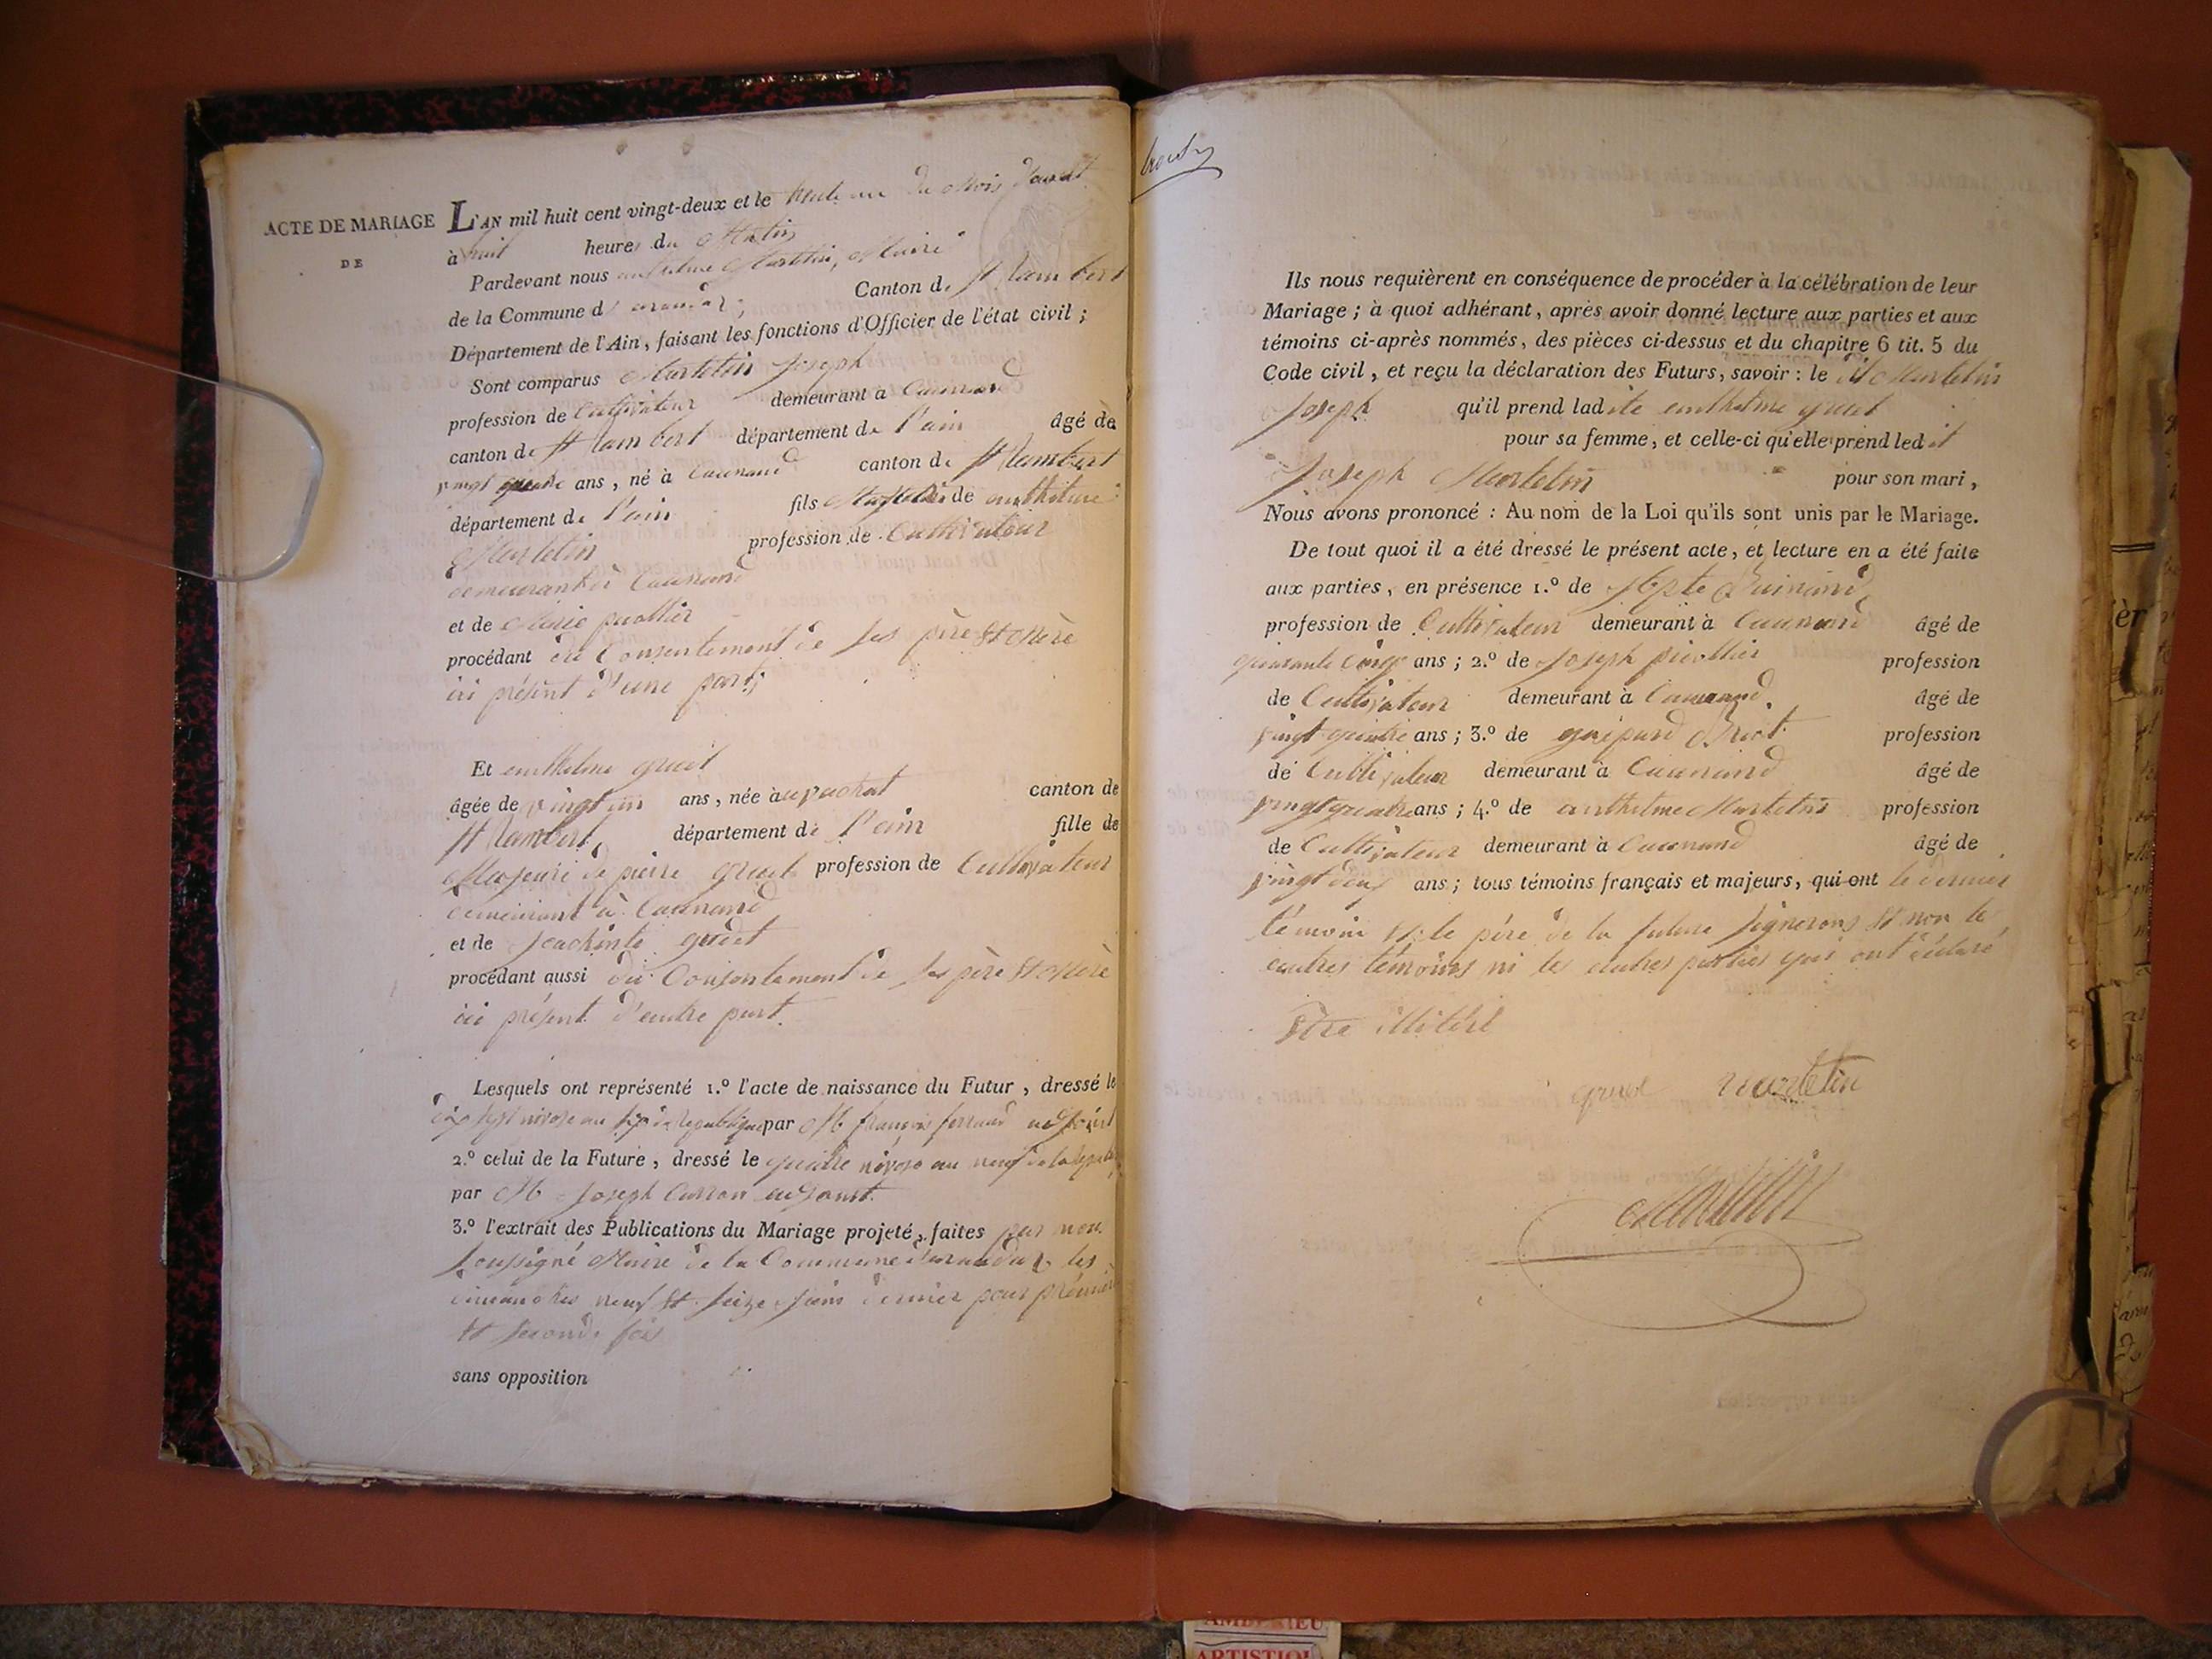 ACTE DE MARIAGE
DE
L'AN mil huit cent vingt-deux et le trente un du Mois d'aoust
à huit heures du Matin
Pardevant nous anthelme Martelin, Maire
de la Commune d' Canton de St Rambert
Département de l'Ain, faisant les fonctions d'Officier de l'état civil ;
Sont comparus Martelin Joseph
profession de Cultivateur demeurant à Caunand
canton de St Rambert département de l'ain âgé de
vingt quatre ans, né à Caunand canton de St Rambert
département de l'ain fils de anthelme
Martelin profession de Cultivateur
demeurant à Caunand
et de Marie
procédant du Consentement de ses père et Mère
ici présent d'une part,
Et anthelme gruel
âgée de vingt un ans, née canton de
St Rambert, département de l'ain fille de
Majeure de pierre gruel profession de Cultivateur
demeurant à Caunand
et de
procédant aussi du Consentement de ses père et Mère
ici présent d'autre part.
Lesquels ont représenté 1.° l'acte de naissance du Futur, dressé le
dix sept nivose an par M françois ferrand adjoint
2.° celui de la Future, dressé le quatre nivose an neuf de la
par M Joseph adjoint.
3.° l'extrait des Publications du Mariage projeté, faites par nous
soussigné Maire de la Commune les
dimanches neuf et seize juin dernier pour première
et seconde fois
sans opposition
Ils nous requièrent en conséquence de procéder à la célébration de leur
Mariage ; à quoi adhérant, après avoir donné lecture aux parties et aux
témoins ci-après nommés, des pièces ci-dessus et du chapitre 6 tit. 5 du
Code civil, et reçu la déclaration des Futurs, savoir : le dit Martelin
Joseph qu'il prend ladite anthelme gruel
pour sa femme, et celle-ci qu'elle prend ledit
Joseph Martelin pour son mari,
Nous avons prononcé : Au nom de la Loi qu'ils sont unis par le Mariage.
De tout quoi il a été dressé le présent acte, et lecture en a été faite
aux parties, en présence 1.° de
profession de Cultivateur demeurant à Caunand âgé de
quarante cinq ans ; 2.° de Joseph profession
de Cultivateur demeurant à Caunand. âgé de
vingt quatre ans ; 3.° de profession
de Cultivateur demeurant à Caunand âgé de
vingt quatre ans ; 4.° de anthelme Martelin profession
de Cultivateur demeurant à Caunand âgé de
vingt deux ans ; tous témoins français et majeurs, qui ont le dernier
témoin et le père de la future signerons et non les
autres témoins ni les autres parties qui ont déclaré
être illitéré
gruel martelin
Martelin